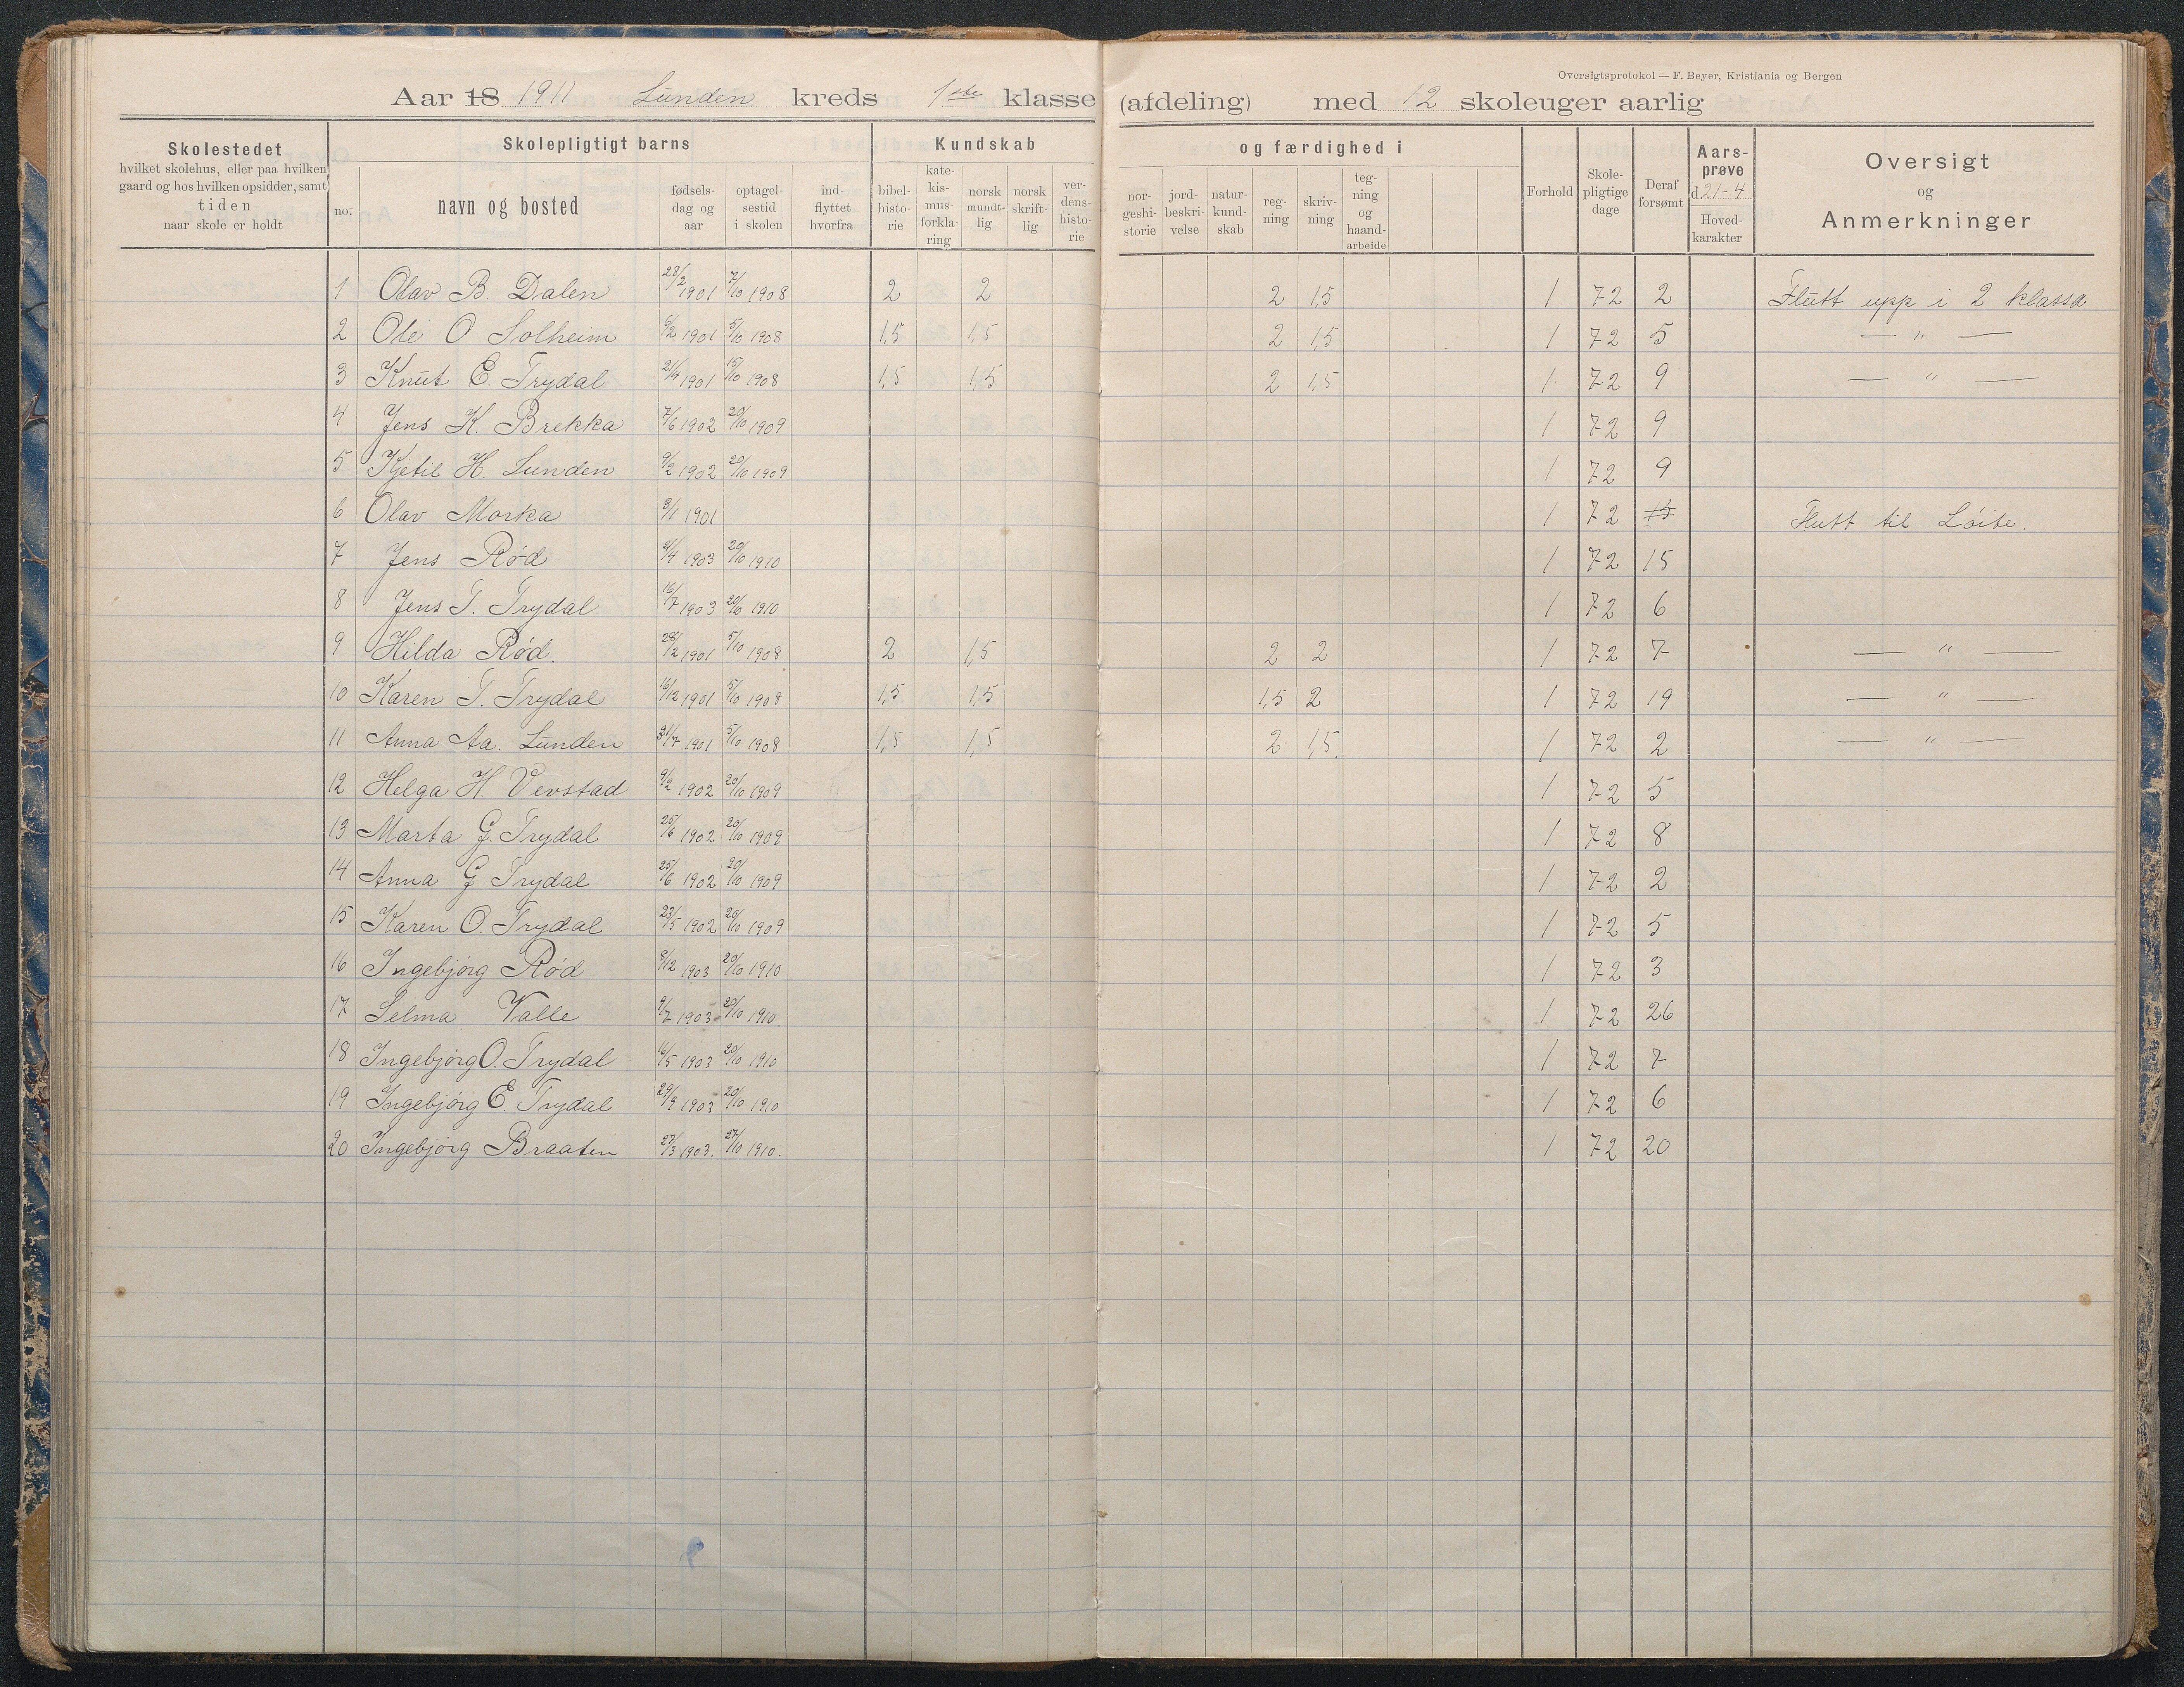 Oversigtsprotokol — F. Beyer, Kristiania og Bergen
Aar 18 1911 Lunden kreds 1ste klasse (afdeling) med 12 skoleuger aarlig
Skolestedet
hvilket skolehus, eller paa hvilken
gaard og hos hvilken opsidder, samt
tiden
naar skole er holdt
Skolepligtigt barns
no.
navn og bosted
fødsels-
dag og
aar
optagel-
sestid
i skolen
ind-
flyttet
hvorfra
Kundskab
bibel-
histo-
rie
kate-
kis-
mus-
forkla-
ring
norsk
mundt-
lig
norsk
skrift-
lig
ver-
dens-
histo-
rie
og færdighed i
nor-
geshi-
storie
jord-
beskri-
velse
natur-
kund-
skab
reg-
ning
skriv-
ning
teg-
ning
og
haand-
arbeide
Forhold
Skole-
pligtige
dage
Deraf
forsømt
Aars-
prøve
d. 21-4
Hoved-
karakter
Oversigt
og
Anmerkninger
1 Olav B. Dalen 28/2 1901 7/10 1908 2 2 2 1,5 1 72 2 Flutt upp i 2 klassa
2 Ole O Solheim 6/2 1901 5/10 1908 1,5 1,5 2 1,5 1 72 5 — " —
3 Knut E. Trydal 21/4 1901 15/10 1908 1,5 1,5 2 1,5 1 72 9 — " —
4 Jens K. Brekka 7/6 1902 20/10 1909 1 72 9
5 Kjetil H. Lunden 9/2 1902 20/10 1909 1 72 9
6 Olav Morka 3/1 1901 1 72 Flutt til Løite.
7 Jens Rød 21/4 1903 20/10 1910 1 72 15
8 Jens T. Trydal 16/7 1903 20/10 1910 1 72 6
9 Hilda Rød. 28/2 1901 5/10 1908 2 1,5 2 2 1 72 7 — " —
10 Karen T. Trydal 16/12 1901 5/10 1908 1,5 1,5 1,5 2 1 72 19 — " —
11 Anna Aa. Lunden 31/7 1901 5/10 1908 1,5 1,5 2 1,5. 1 72 2 — " —
12 Helga H. Vevstad 9/2 1902 20/10 1909 1 72 5
13 Marta G. Trydal 25/6 1902 20/10 1909 1 72 8
14 Anna G Trydal 25/6 1902 20/10 1909 1 72 2
15 Karen O. Trydal 23/5 1902 20/10 1909 1 72 5
16 Ingebjørg Rød 8/12 1903 20/10 1910 1 72 3
17 Selma Valle 9/7 1903 20/10 1910 1 72 26
18 Ingebjørg O. Trydal 16/5 1903 20/10 1910 1 72 7
19 Ingebjørg E. Trydal 29/9 1903 20/10 1910 1 72 6
20 Ingebjørg Braaten 27/3 1903. 27/10 1910. 1 72 20